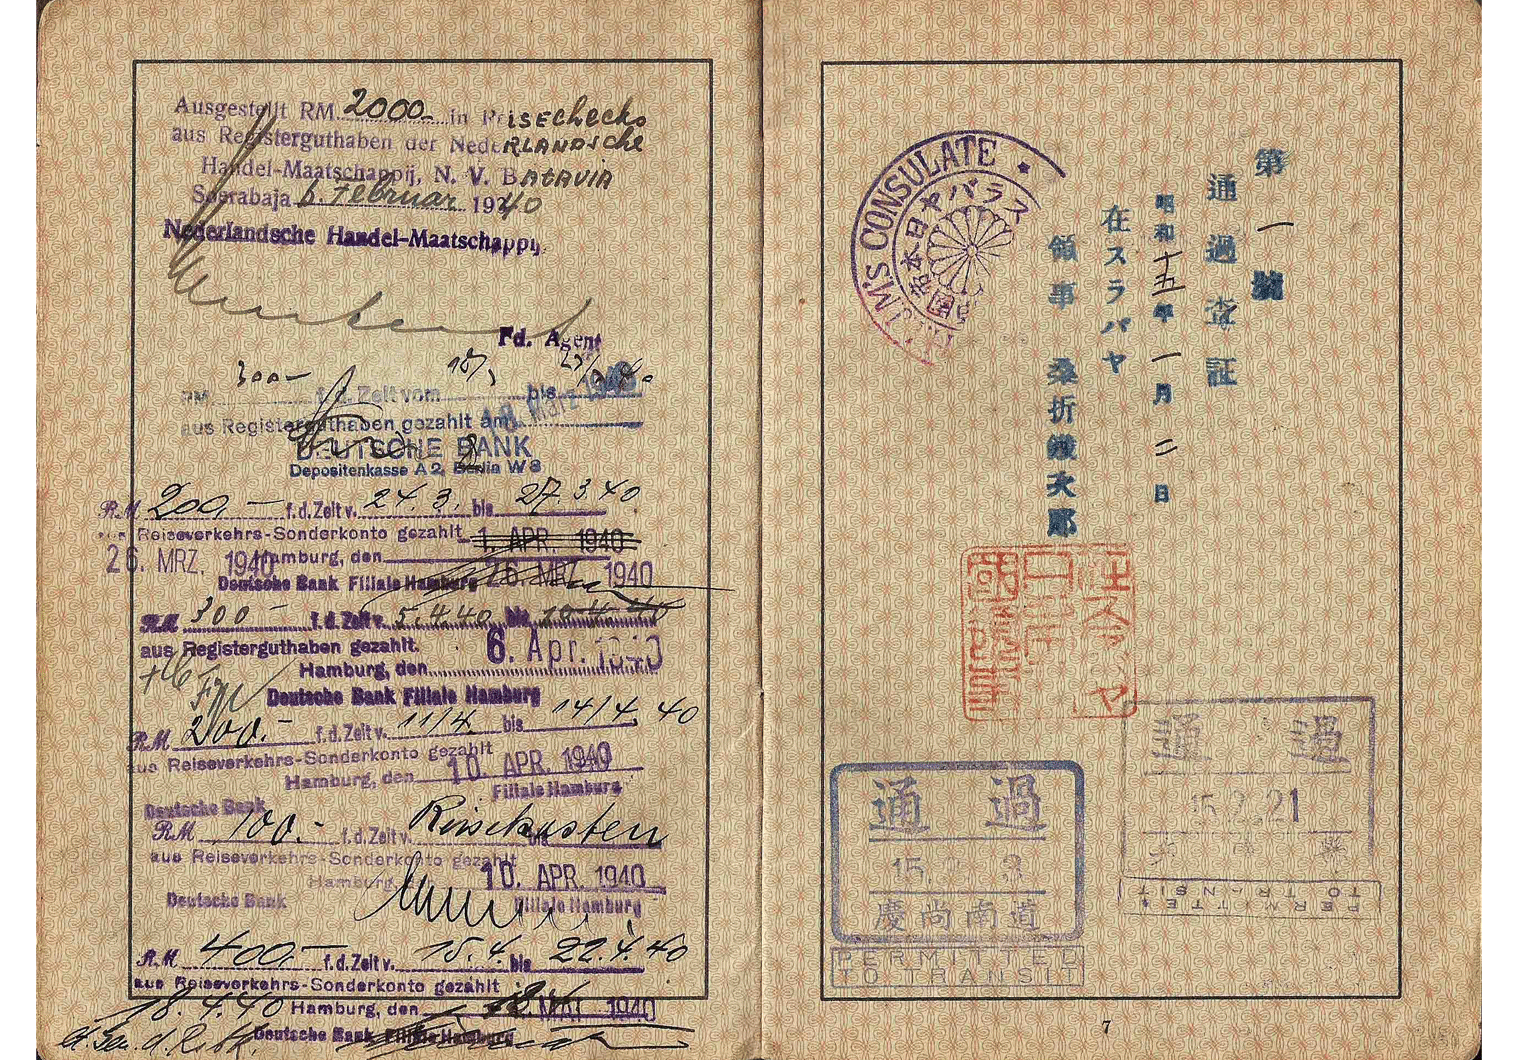 Ausgestellt RM 2000.- in Reisechecks
aus Registerguthaben der Nederlandsche
Handel-Maatschappij, N. V. Batavia
Soerabaja 6. Februar 1940
Nederlandsche Handel-Maatschappij.
Fd. Agent
RM 300- f.d. Zeit vom 18/3 bis
aus Registerguthaben gezahlt am 18. März 1940
DEUTSCHE BANK
Depositenkasse A 2, Berlin W 8
RM 200.- f.d. Zeit v. 24.3. bis 27.3.40
aus Reiseverkehrs-Sonderkonto gezahlt 1. APR. 1940
26. MRZ. 1940 Hamburg, den 26. MRZ. 1940
Deutsche Bank Filiale Hamburg
RM 300- f.d. Zeit v. 5.4.40 bis 10.4.40
aus Registerguthaben gezahlt.
Hamburg, den 6. Apr. 1940
Deutsche Bank Filiale Hamburg
RM 200.- f.d. Zeit v. 11/4. bis 14/4. 40
aus Reiseverkehrs-Sonderkonto gezahlt
Hamburg, den 10. APR. 1940
Deutsche Bank Filiale Hamburg
RM 100.- f.d. Zeit v. Reisekosten bis
aus Reiseverkehrs-Sonderkonto gezahlt
Hamburg 10. APR. 1940
Deutsche Bank Filiale Hamburg
RM 400.- f.d. Zeit v. 15.4. bis 22.4.40
aus Reiseverkehrs-Sonderkonto gezahlt
18.4.40 Hamburg, den 1940
Deutsche Bank Filiale Hamburg
第一號
通過査証
昭和十五年一月二日
在スラバヤ
領事 桑折鐵次郎
H.I.J.M.'S CONSULATE
在スラバヤ日本帝國
在スラバヤ
日本帝
國領事
通過
15.2.21
PERMITTED
TO TRANSIT
通過
15. 3
慶尚南道
PERMITTED
TO TRANSIT
7